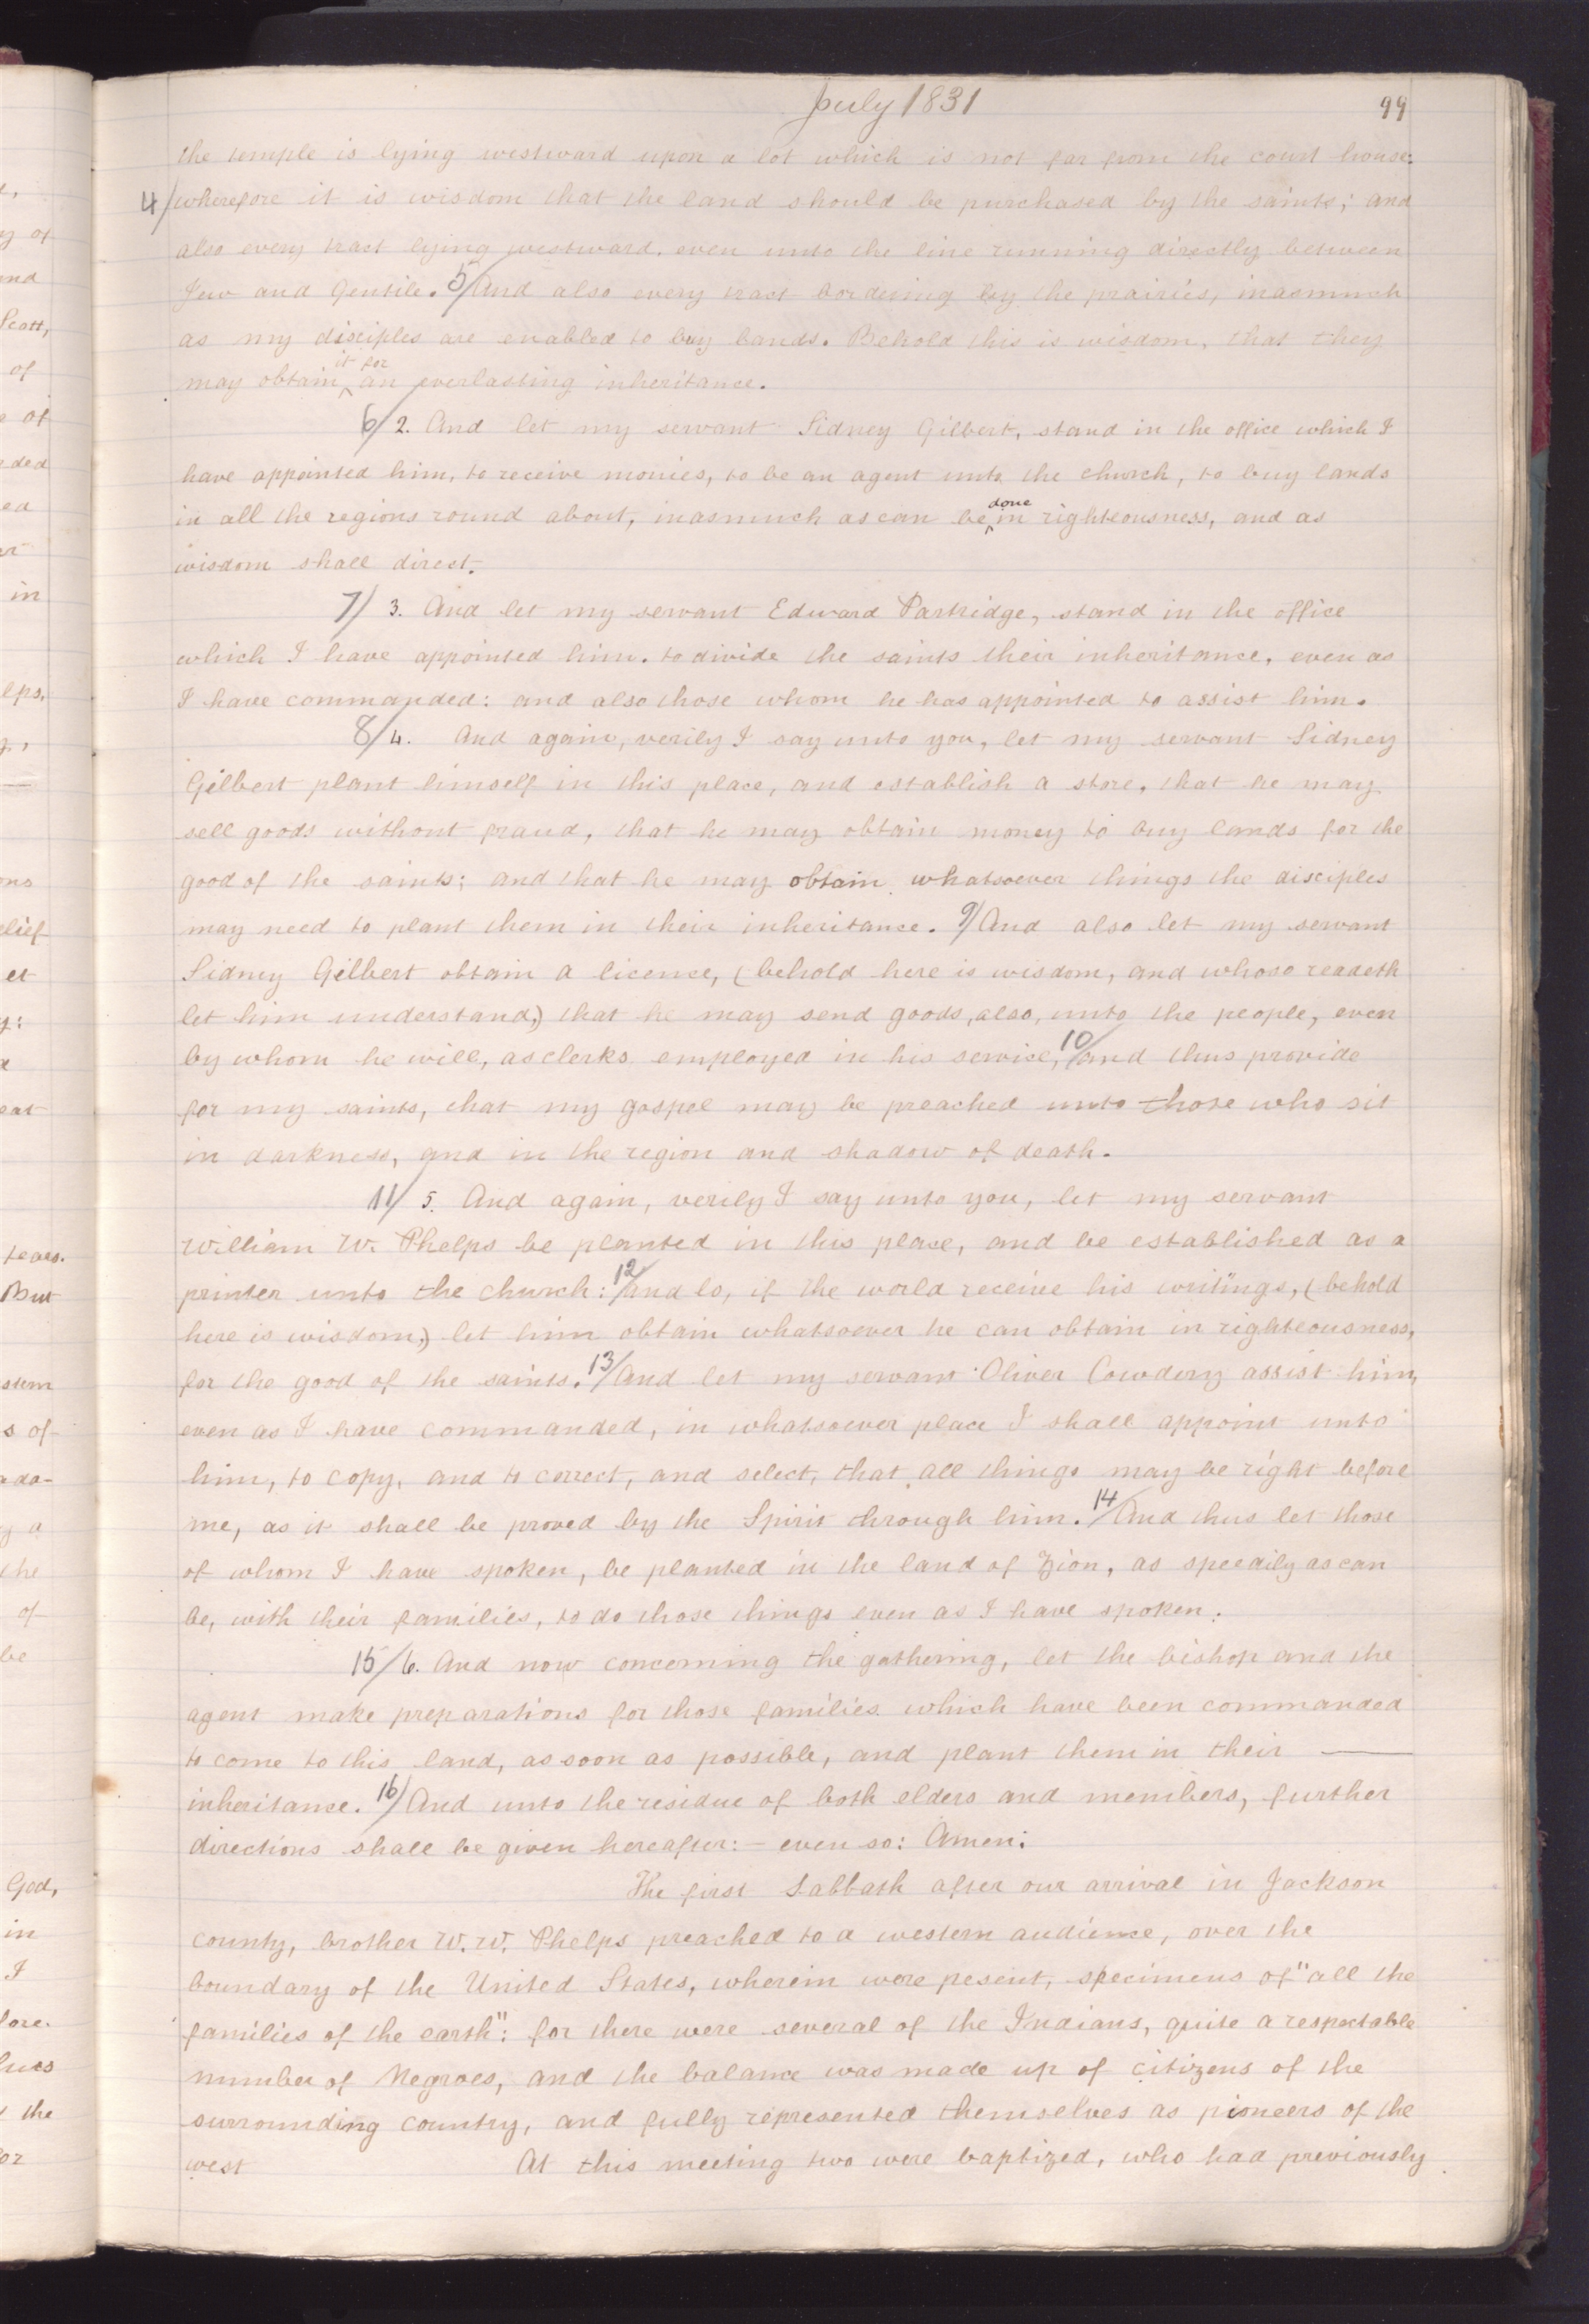 July 1831
99
the temple is lying westward upon a lot which is not far from the court house:
4/ wherefore it is wisdom that the land should be purchased by the saints; and
also every tract lying westward, even unto the line running directly between
Jew and Gentile. 5/ And also every tract bordering by the prairies, inasmuch
as my disciples are enabled to buy lands. Behold this is wisdom, that they
may obtain ^it for an everlasting inheritance.
6/ 2. And let my servant Sidney Gilbert, stand in the office which I
have appointed him, to receive monies, to be an agent unto the church, to buy lands
in all the regions round about, inasmuch as can be ^done in righteousness, and as
wisdom shall direct.
7/ 3. And let my servant Edward Partridge, stand in the office
which I have appointed him. to divide the saints their inheritance, even as
I have commanded: and also those whom he has appointed to assist him.
8/ 4. And again, verily I say unto you, let my servant Sidney
Gilbert plant himself in this place, and establish a store, that he may
sell goods without fraud, that he may obtain money to buy lands for the
good of the saints; and that he may obtain whatsoever things the disciples
may need to plant them in their inheritance. 9/ And also let my servant
Sidney Gilbert obtain a licence, (behold here is wisdom, and whoso readeth
let him understand,) that he may send goods, also, unto the people, even
by whom he will, as clerks employed in his servise, 10/ and thus provide
for my saints, that my gospel may be preached unto those who sit
in darkness, and in the region and shadow of death.
11/ 5. And again, verily I say unto you, let my servant
William W. Phelps be planted in this place, and be established as a
printer unto the church: 12/ and lo, if the world receive his writings, (behold
here is wisdom,) let him obtain whatsoever he can obtain in righteousness,
for the good of the saints. 13/ And let my servant Oliver Cowdery assist him,
even as I have commanded, in whatsoever place I shall appoint unto
him, to copy, and to correct, and select, that all things may be right before
me, as it shall be proved by the Spirit through him. 14/ And thus let those
of whom I have spoken, be planted in the land of Zion, as speedily as can
be, with their families, to do those things even as I have spoken.
15/ 6. And now concerning the gathering, let the bishop and the
agent make preparations for those families which have been commanded
to come to this land, as soon as possible, and plant them in their —
inheritance. 16/ And unto the residue of both elders and members, further
directions shall be given hereafter:— even so: Amen:
The first Sabbath after our arrival in Jackson
county, brother W. W. Phelps preached to a western audience, over the
boundary of the United States, wherein were pesent, specimens of "all the
families of the earth": for there were several of the Indians, quite a respectable
number of Negroes, and the balance was made up of citizens of the
surrounding country, and fully represented themselves as pioneers of the
west At this meeting two were baptized, who had previously